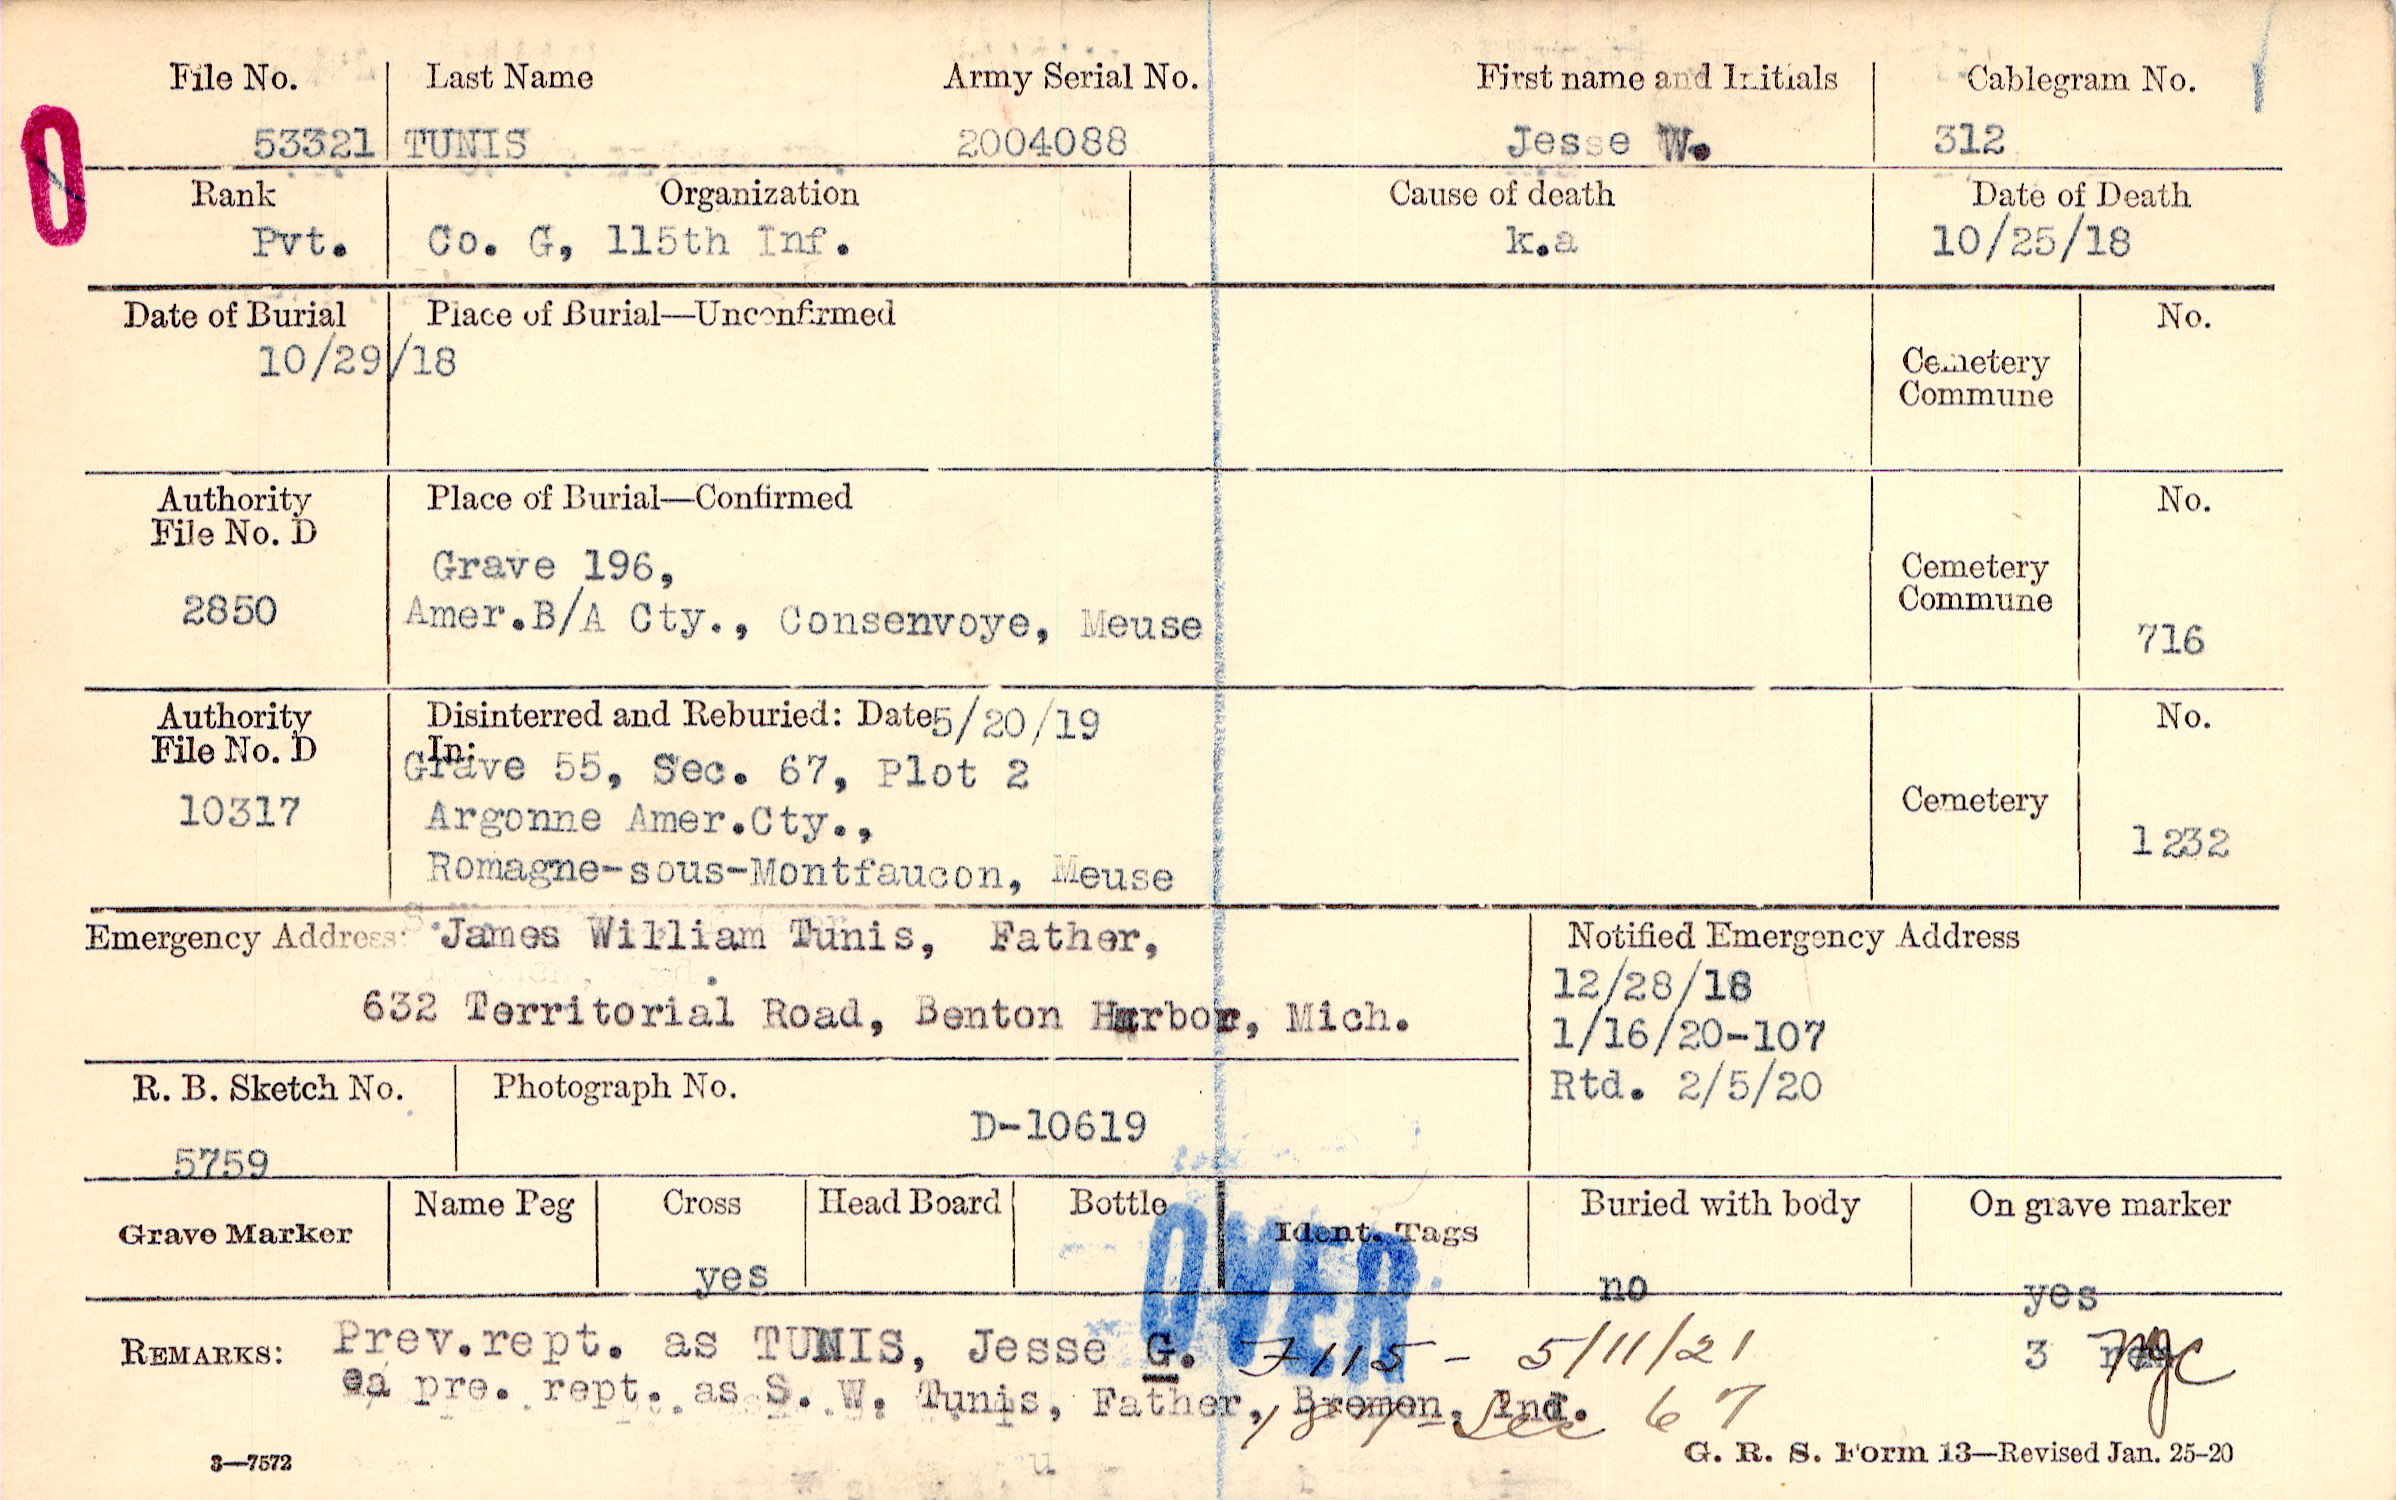 File No. Last Name Army Serial No. First name and Initials Cablegram No.
53321 TUNIS 2004088 Jesse W. 312
Rank Organization Cause of death Date of Death
Pvt. Co. G, 115th Inf. k.a 10/25/18
Date of Burial Place of Burial—Unconfirmed No.
10/29/18
Cemetery
Commune
Authority Place of Burial—Confirmed No.
File No. D
Grave 196,
Cemetery
2850 Amer.B/A Cty., Consenvoye, Meuse
Commune
716
Authority Disinterred and Reburied: Date 5/20/19 No.
File No. D In:
Grave 55, Sec. 67, Plot 2
10317 Argonne Amer.Cty., Cemetery
1232
Romagne-sous-Montfaucon, Meuse
Emergency Address: James William Tunis, Father, Notified Emergency Address
12/28/18
632 Territorial Road, Benton Harbor, Mich.
1/16/20-107
R. B. Sketch No. Photograph No. Rtd. 2/5/20
D-10619
5759
Grave Marker Name Peg Cross Head Board Bottle Ident. Tags Buried with body On grave marker
yes no yes
OVER
REMARKS: Prev.rept. as TUNIS, Jesse G. 7115 - 5/11/21 3
ea pre. rept. as S. W. Tunis, Father, Bremen, Ind.
Sec 67
3—7572 G. R. S. Form 13—Revised Jan. 25-20